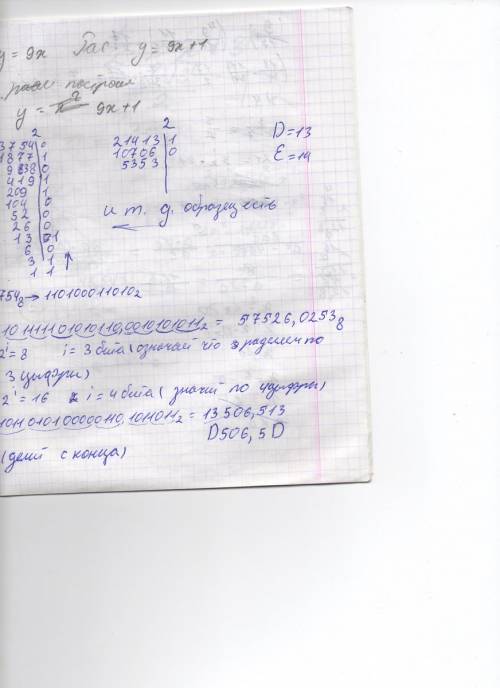 y = 9x Рас y = 9x+1
построил
y = 9x+1
2
3754 0
1877 1
938 0
419 1
209 1
104 0
52 0
26 0
13 1
6 0
3 1
1 1
2
21413 1
10706 0
5353
D=13
E=14
и т. д. образец есть
754₈ → 110100011010₂
101111101010110,001010101011₂ = 57526,0253₈
2ⁱ=8 i = 3 бита (означает что разделен по
3 цифры)
2ⁱ=16 i = 4 бита (значит по 4 цифры)
1101010100000110,1011011₂ = 13506,513
D506,5D
(делят с конца)